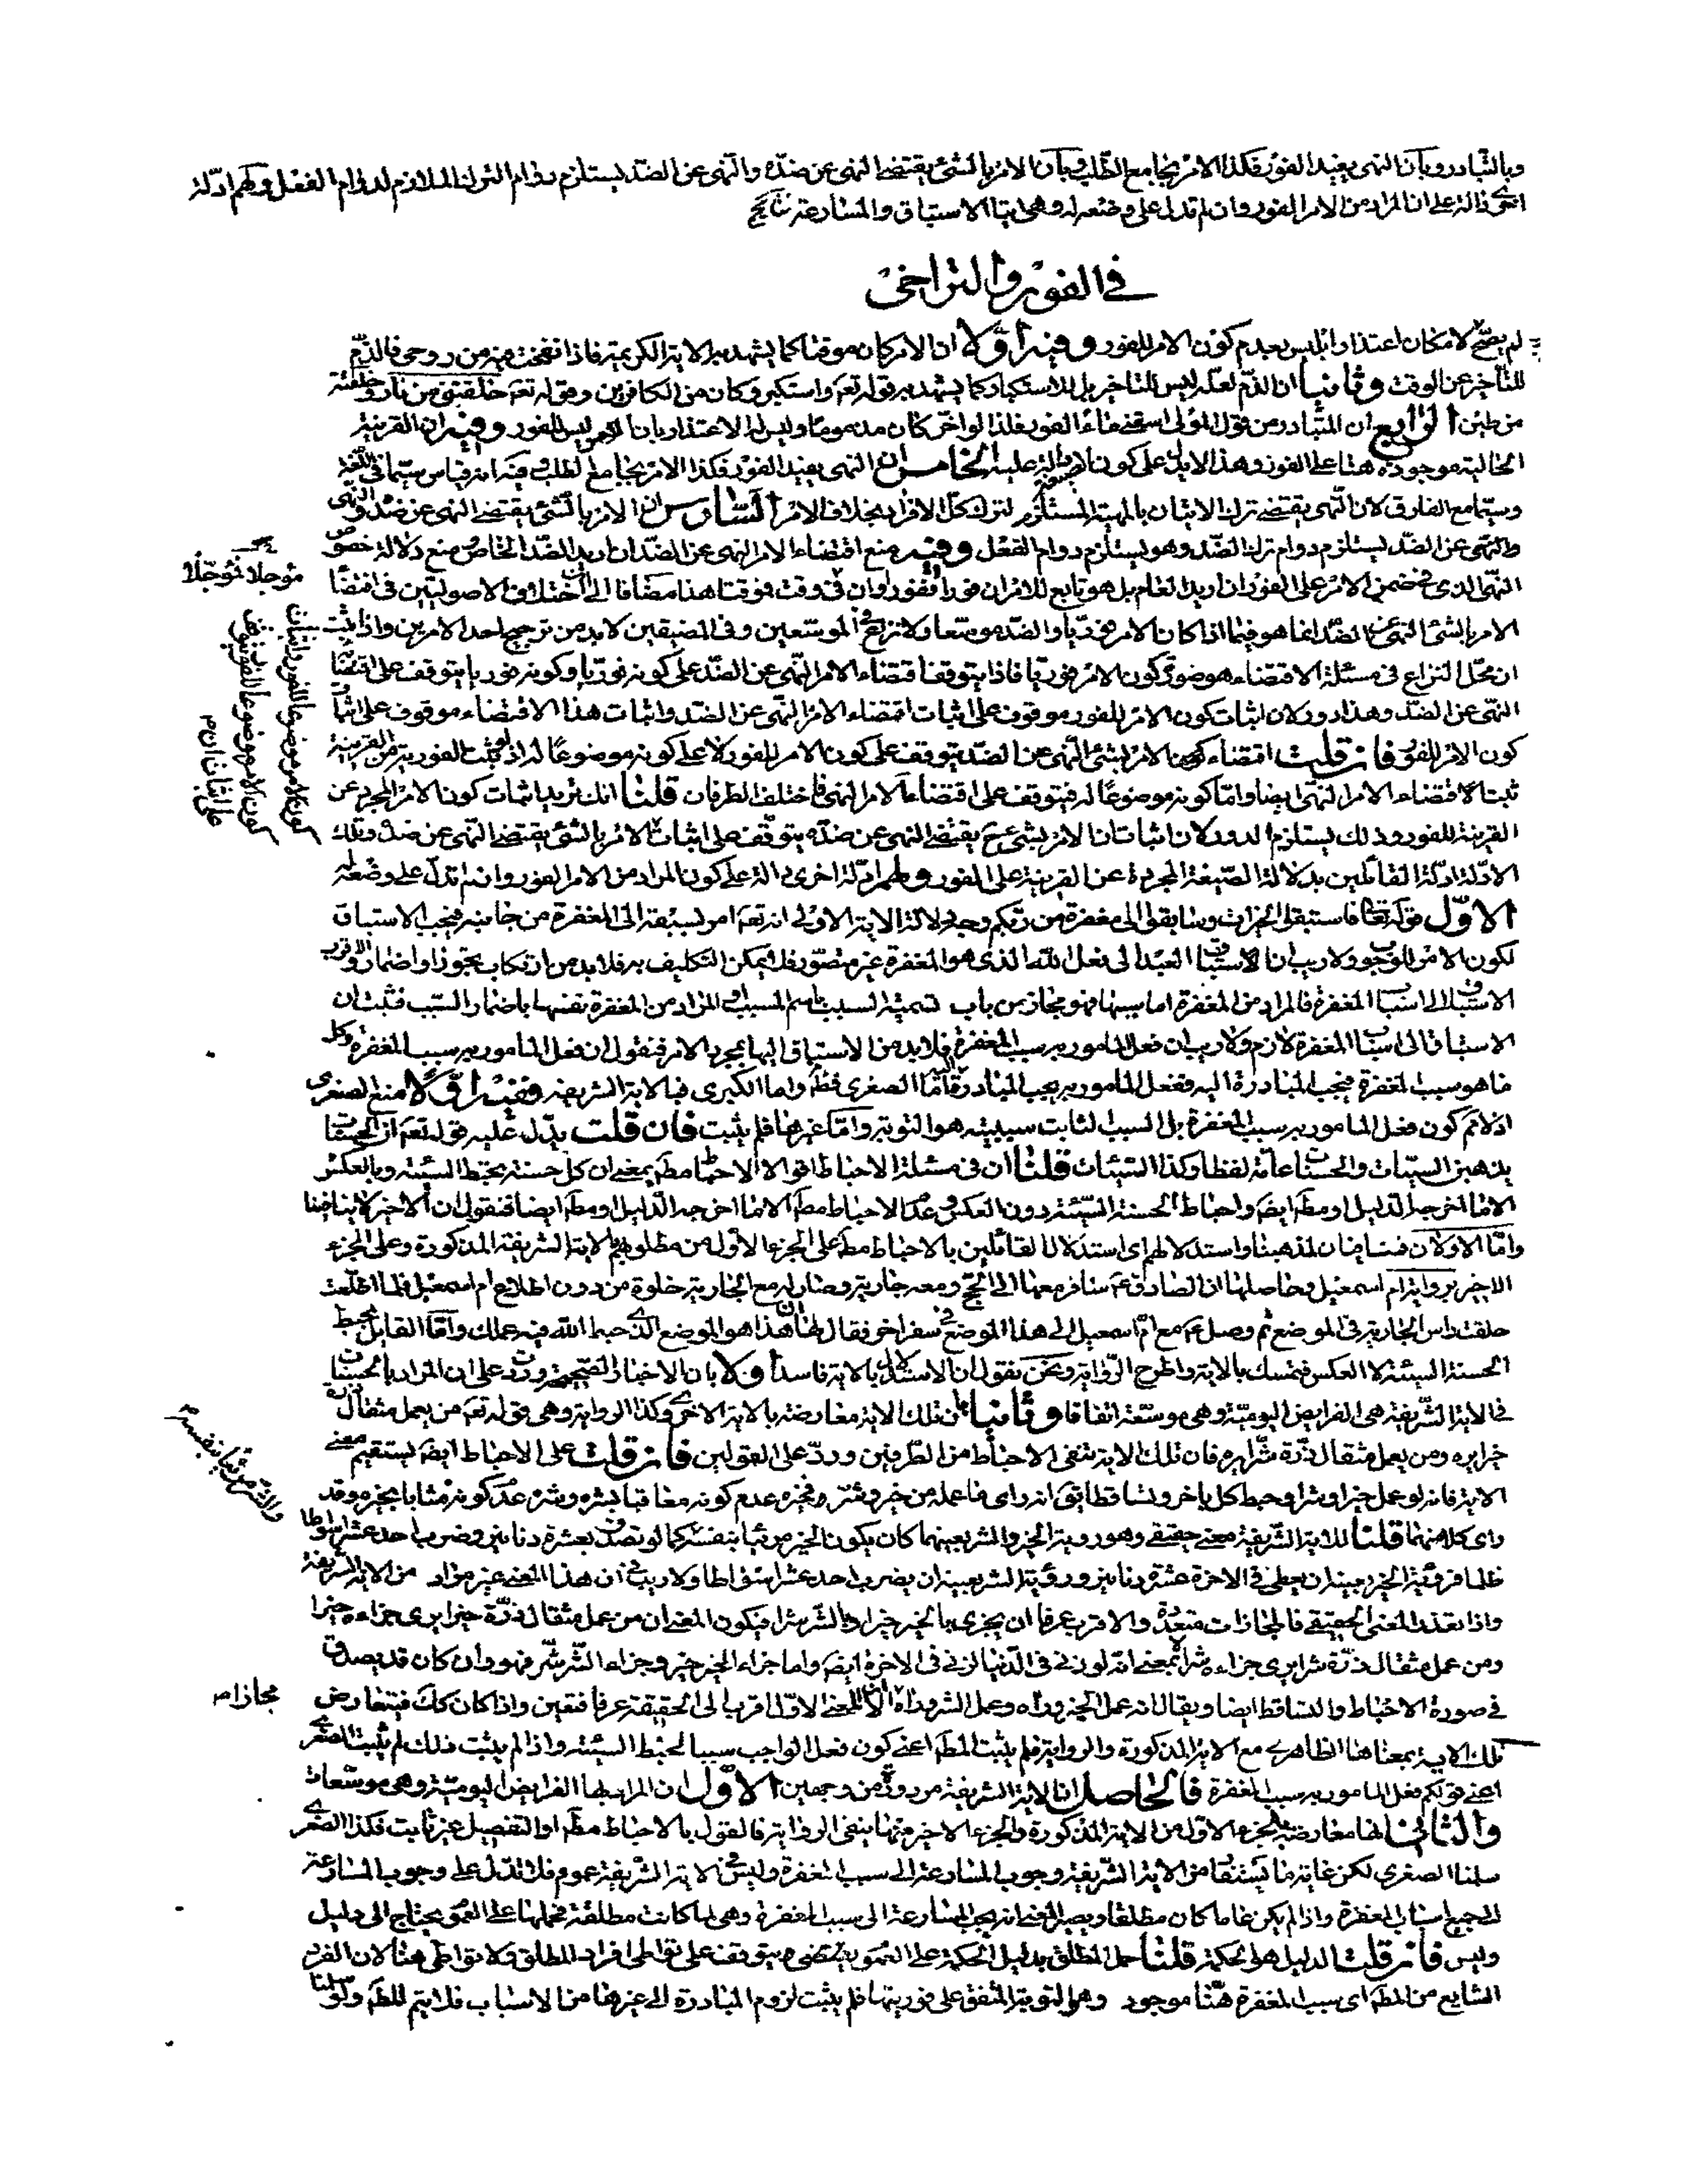 وبالتبادر وبأن النهى يفيد الفور فكذا الامر بجامع الطلب وبأن الامر بالشئ يقتضى النهى عن ضدّه والنهى عن الضد يستلزم دوام الترك الملازم لدوام الفعل ولهم ادلة
اخرى دالة على ان المراد من الامر الفور وان لم تدل على وضعه له وهى ايتا الاستباق والمسارعة
فى الفور والتراخى
لم يصحّ لامكان اعتذار ابليس بعدم كون الامر للفور وفيه اوّلا ان الامر كان موقتا كما يشهد به الاية الكريمة فاذا نفخت فيه من روحى فالذمّ
للتأخير عن الوقت وثانيا ان الذمّ لعله ليس للتاخير بل للاستكبار كما يشهد به قوله تعه واستكبر وكان من الكافرين وقوله تعه خلقتنى من نار وخلقته
من طين الرابع ان المتبادر من قول المولى اسقنى ماء الفور فلذا لو اخّر كان مذموما وليس له الاعتذار بان الامر ليس للفور وفيه ان القرينة
الحالية موجودة هنا على الفور وهذا لا يدل على كون الصيغة دالة عليه الخامس ان النهى يفيد الفور فكذا الامر بجامع الطلب وفيه انه قياس سيّما فى اللغة
وسيّما مع الفارق لان النهى يقتضى ترك الاتيان بالمهية المستلزم لترك كل الافراد بخلاف الامر السّادس ان الامر بالشئ يقتضى النهى عن ضدّه
والنهى عن الضدّ يستلزم دوام ترك الضد وهو يستلزم دوام الفعل وفيه منع اقتضاء الامر النهى عن الضد ان اريد الضد الخاص ومنع دلالة خصوص
النهى الذى فى ضمن الامر على الفور ان اريد العام بل هو تابع للامر ان فورا ففورا وان فى وقت فوقتا هذا مضافا الى ان اختلاف الاصوليين فى اقتضاء
الامر بالشئ النهى عن الضد انما هو فيما اذا كان الامر فوريّا والضد موسّعا ولا نزاع فى الموسّعين وفى المضيقين لا بد من ترجيح احد الامرين واذا ثبت
ان محل النزاع فى مسئلة الاقتضاء هو صورة كون الامر فوريا فاذا يتوقف اقتضاء الامر النهى عن الضدّ على كونه فوريا وكونه فوريا يتوقف على اقتضاء
النهى عن الضد وهذا دور لان اثبات كون الامر للفور موقوف على اثبات اقتضاء الامر النهى عن الضد واثبات هذا الاقتضاء موقوف على اثبات
كون الامر للفور فان قلت اقتضاء كون الامر بالشئ النهى عن الضد يتوقف على كون الامر للفور لا على كونه موضوعا له اذ لو ثبت الفورية من القرينة
ثبت الاقتضاء الامر النهى ايضا واما كونه موضوعا له فيتوقف على اقتضاء الامر النهى فاختلف الطرفان قلنا انك تريد اثبات كون الامر المجرد عن
القرينة للفور وذلك يستلزم الدور لان اثبات ان الامر بشئ ح يقتضى النهى عن ضده يتوقف على اثبات الامر بالشئ يقتضى النهى عن ضده وتلك
الادلة ادلة القائلين بدلالة الصيغة المجردة عن القرينة على الفور ولهم ادلة اخرى دالة على كون المراد من الامر الفور وان لم تدل على وضعه له
الاوّل قوله تعالى فاستبقوا الخيرات وسابقوا الى مغفرة من ربكم وجه دلالة الاية الاولى انه تعه امر بالسبقة الى المغفرة من جانبه فيجب الاستباق
لكون الامر للوجوب ولا ريب ان الاستباق العبد الى فعل الله الذى هو المغفرة غير متصوّر فلا يمكن التكليف به فلا بد من ارتكاب تجوز او اضمار والاقرب
الاستباق الى اسباب المغفرة فالمراد من المغفرة اما سببها فهو مجاز من باب تسمية السبب باسم المسبب او المراد من المغفرة نفسها باضمار السبب فثبت ان
الاستباق الى اسباب المغفرة لازم ولا ريب ان فعل المامور به سبب المغفرة فلا بد من الاستباق اليها بمجرد الامر فنقول ان فعل المامور به سبب المغفرة وكل
ما هو سبب المغفرة فيجب المبادرة اليه ففعل المامور به يجب المبادرة اليه امّا الصغرى فظه واما الكبرى فبالاية الشريفه وفيه اوّلا منع الصغرى
اذ لا نم كون فعل المامور به سبب المغفرة بل السبب الثابت سببيته هو التوبة وامّا غيرها فلم يثبت فان قلت يدلّ عليه قوله تعه ان الحسنات
يذهبن السيئات والحسنات عامة لفظا وكذا السّيئات قلنا ان فى مسئلة الاحباط اقوالا الاحباط مطه بمعنى ان كل حسنة يحبط السيئة وبالعكس
الا ما اخرجه الدليل او مطه ايضه واحباط الحسنة السّيئة دون العكس وعدم الاحباط مطه الا ما اخرجه الدّليل او مطه ايضا فنقول ان الاخير لا ينافينا
وامّا الاولان فمنافيان لمذهبنا واستدلالهم اى استدلال القائلين بالاحباط مطه على الجزء الاوّل من مطلوبهم الاية الشريفة المذكورة وعلى الجزء
الاخير برواية ام اسمعيل وحاصلها ان الصادق عه سافر معها الى الحج ومعه جارية وصار له مع الجارية خلوة من دون اطلاع ام اسمعيل فلما اطلعت
حلقت راس الجارية فى الموضع ثم وصل عه مع امّ اسمعيل الى هذا الموضع فى سفر اخر فقال لها ان هذا هو الموضع الذى حبط الله فيه عملك وامّا القايل بحبط
الحسنة السيئة لا العكس فتمسك بالاية واطرح الرّواية ونحن نقول ان الاستدلال بالاية فاسد اولا بان الاخبار الصحيحة وردت على ان المراد بالحسنات
فى الاية الشّريفة هى الفرايض اليوميّة وهى موسّعة اتفاقا وثانيا بان تلك الاية معارضة بالاية الاخرى وكذا الرواية وهى قوله تعه من يعمل مثقال ذرة
خيرا يره ومن يعمل مثقال ذرّة شرّا يره فان تلك الاية تنفى الاحباط من الطرفين وردّ على القولين فان قلت على الاحباط ايضه يستقيم معنى
الاية فانه لو عمل خيرا وشرا وحبط كل باخر وتساقطا بقى انه راى ما عمله من خير وشر فخيره عدم كونه معاقبا بشره وشره عدم كونه مثابا بخيره وقد
راى كلا منهما قلنا للاية الشّريفة معنى حقيقى وهو روية الخير والشر بعينهما كان يكون الخير مرئيا بنفسه كما لو تصدق بعشرة دنانير وضرب احد عشر اسواطا
ظلما فروية الخير بعينه ان يعطى فى الاخرة عشرة دنانير ورؤية الشر بعينه ان يضرب احد عشر اسواطا ولا ريب فى ان هذا المعنى غير مراد من الاية الشريفة
واذا تعذر المعنى الحقيقى فالمجازات متعددة والاقرب عرفا ان يجزى بالخير خيرا وبالشّر شرا فيكون المعنى ان من عمل مثقال ذرّة خيرا يرى جزاءه خيرا
ومن عمل مثقال ذرّة شرا يرى جزاءه شرا بمعنى انه لو زنى فى الدنيا لزنى فى الاخرة ايضه واما جزاء الخير خير وجزاء الشر شرّ فهو وان كان قد يصدق
فى صورة الاحباط والتساقط ايضا ويقال انه عمل الخير وراه وعمل الشر وراه الا ان المعنى الاوّل اقرب الى الحقيقة عرفا فتعين واذا كان كك فيتعارض
تلك الاية بمعناها الظاهرى مع الاية المذكورة والرواية فلم يثبت المطه اعنى كون فعل الواجب سببا لحبط السيئة واذا لم يثبت ذلك لم يثبت الصغرى
اعنى قولكم فعل المامور به سبب المغفرة فالحاصل ان الاية الشريفة مردودة من وجهين الاوّل ان المراد بها الفرايض اليوميّة وهى موسّعات
والثانى انها معارضة بالجزء الاول من الاية المذكورة والجزء الاخير منها ينفى الرواية فالقول بالاحباط مطه او التفصيل غير ثابت فكذا الصغرى
سلمنا الصغرى لكن غاية ما يستفاد من الاية الشّريفة وجوب المسارعة الى سبب المغفرة وليس فى الاية الشّريفة عموم فلا تدل على وجوب المسارعة
لجميع اسباب المغفرة واذا لم يكن عاما كان مطلقا ويصير المعنى انه يجب المسارعة الى سبب المغفرة وهى لما كانت مطلقة فحملها على العموم يحتاج الى دليل
وليس فان قلت الدليل هو الحكمة قلنا حمل المطلق بدليل الحكمة على العموم يتوقف على تواطى افراد المطلق ولا تواطى هنا لان الفرد
الشايع من المطه اى سبب المغفرة هنا موجود وهو التوبة المتفق على فوريتها فلم يثبت لزوم المبادرة الى غيرها من الاسباب فلا يتم المطه ولو سلمنا
مجازا